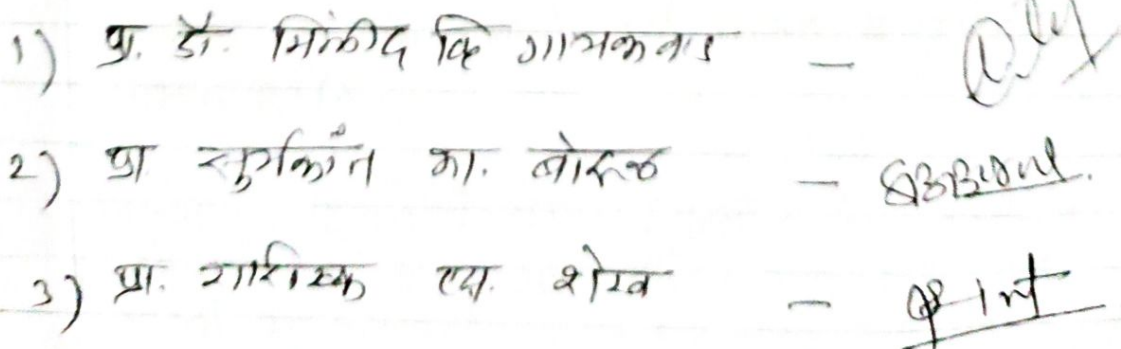 1) प्रा. डॉ. मिलींद वि गायकवाड -
2) प्रा सुर्यकांत का. बोरुळ -
3) प्रा. एस. शेख -